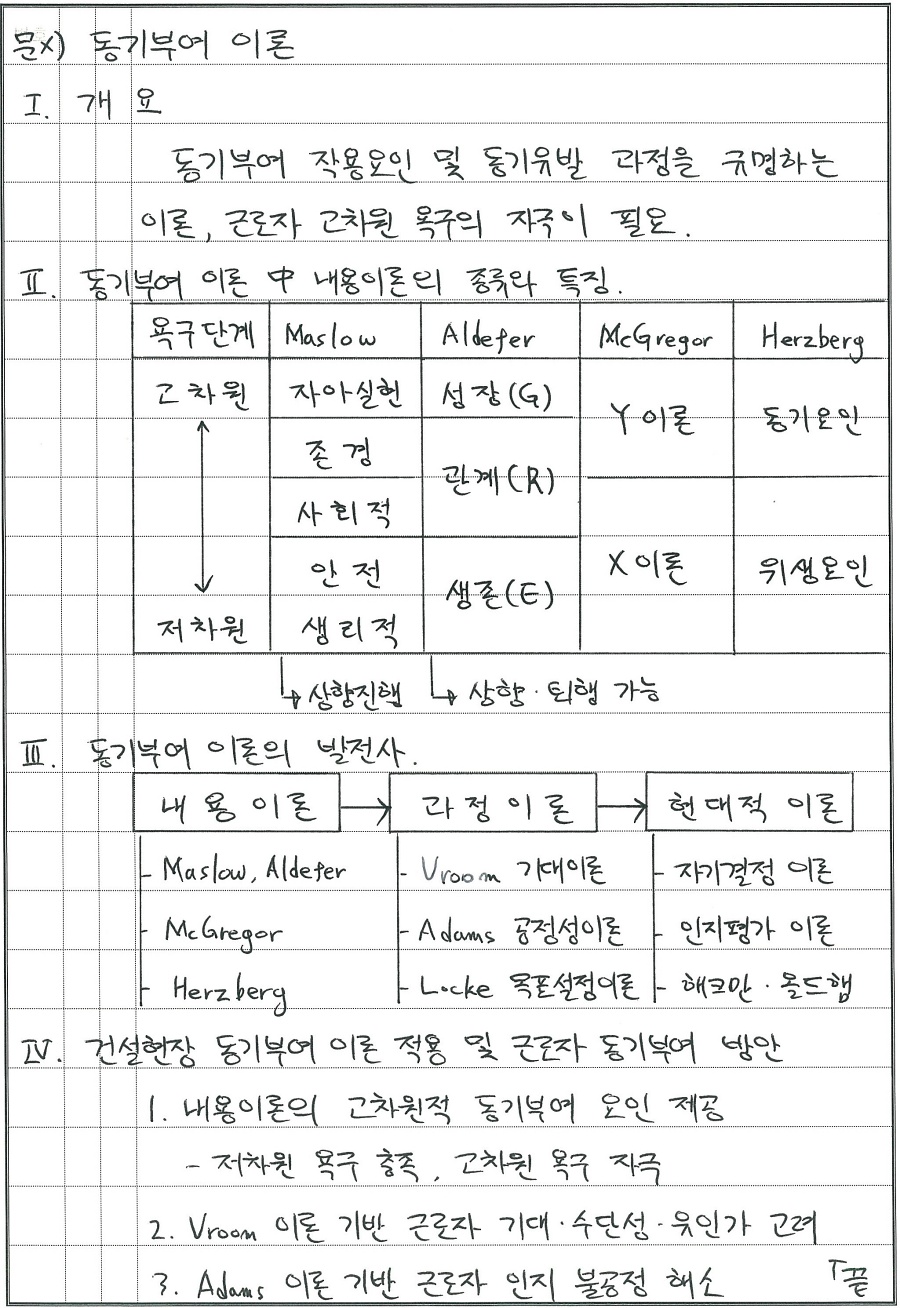 문x) 동기부여 이론
I. 개 요
동기부여 작용요인 및 동기유발 과정을 규명하는
이론, 근로자 고차원 욕구의 자극이 필요.
II. 동기부여 이론 中 내용이론의 종류와 특징.
욕구단계 Maslow Aldefer McGregor Herzberg
고차원 자아실현 성장(G)
Y이론 동기요인
존경
관계(R)
사회적
안전 X이론 위생요인
생존(E)
저차원 생리적
↳상향진행 ↳ 상향·퇴행 가능
III. 동기부여 이론의 발전사.
내용이론 → 과정이론 → 현대적 이론
- Maslow, Aldefer - Vroom 기대이론 - 자기결정 이론
- McGregor - Adams 공정성이론 - 인지평가 이론
- Herzberg - Locke 목표설정이론 - 해크만·올드햄
IV. 건설현장 동기부여 이론 적용 및 근로자 동기부여 방안
1. 내용이론의 고차원적 동기부여 요인 제공
- 저차원 욕구 충족, 고차원 욕구 자극
2. Vroom 이론 기반 근로자 기대·수단성·유인가 고려
3. Adams 이론 기반 근로자 인지 불공정 해소 「끝